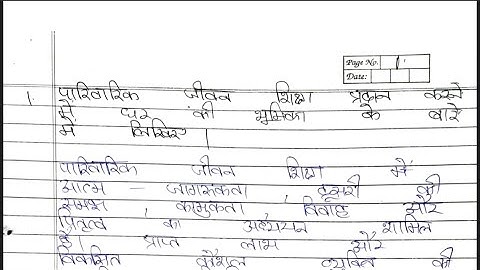 Page No. 1
Date:
1. पारिवारिक जीवन शिक्षा प्रदान करने
में घर की भूमिका के बारे
में लिखिए।
पारिवारिक जीवन शिक्षा में
आत्म - जागरूकता, दूसरों की
समझ, कामुकता, विवाह और
पितृत्व का अध्ययन शामिल
है। प्राप्त लाभ और
विकसित कौशल व्यक्ति को